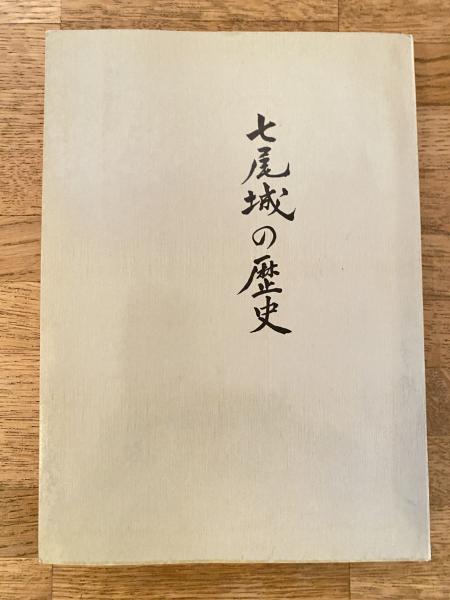 七尾城の歴史